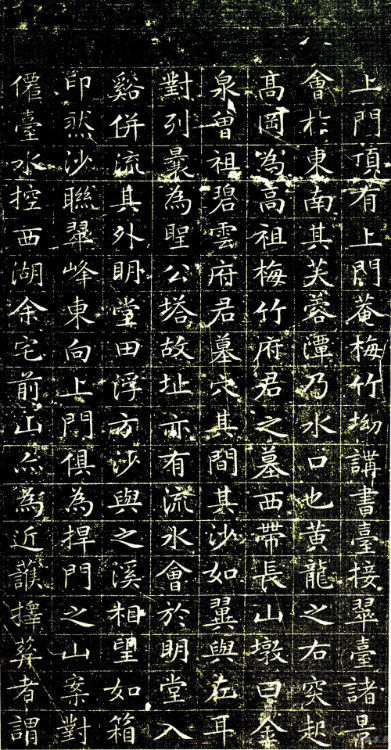 上門頂有上門菴梅竹坳講書臺接翠臺諸景
會於東南其芙蓉潭乃水口也黃龍之右突起
高岡為高祖梅竹府君之墓西帶長山墩曰金
泉曾祖碧雲府君墓穴其間其沙如翼與在耳
對列曩為聖公塔故址亦有流水會於明堂入
谿併流其外明堂田浮方沙與之溪相望如箱
印然沙聯翠峰東向上門俱為捍門之山案對
僊臺水控西湖余宅前山亦為近擇葬者謂